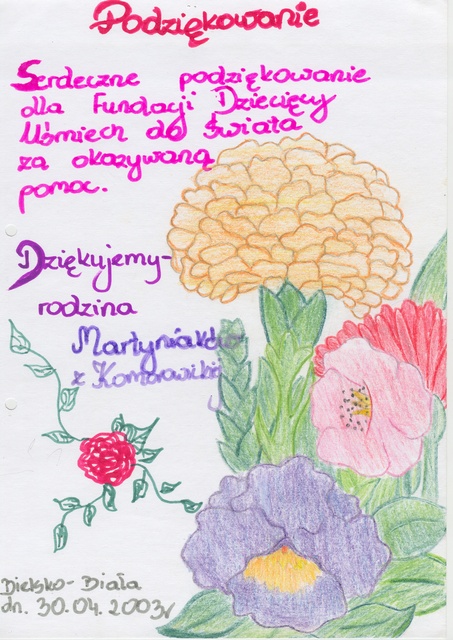 Podziękowanie
Serdeczne podziękowanie
dla Fundacji Dziecięcy
Uśmiech do świata
za okazywaną
pomoc.
Dziękujemy-
rodzina
Martyniaków
z Komorowikiej
Bielsko-Biała
dn. 30.04.2003r